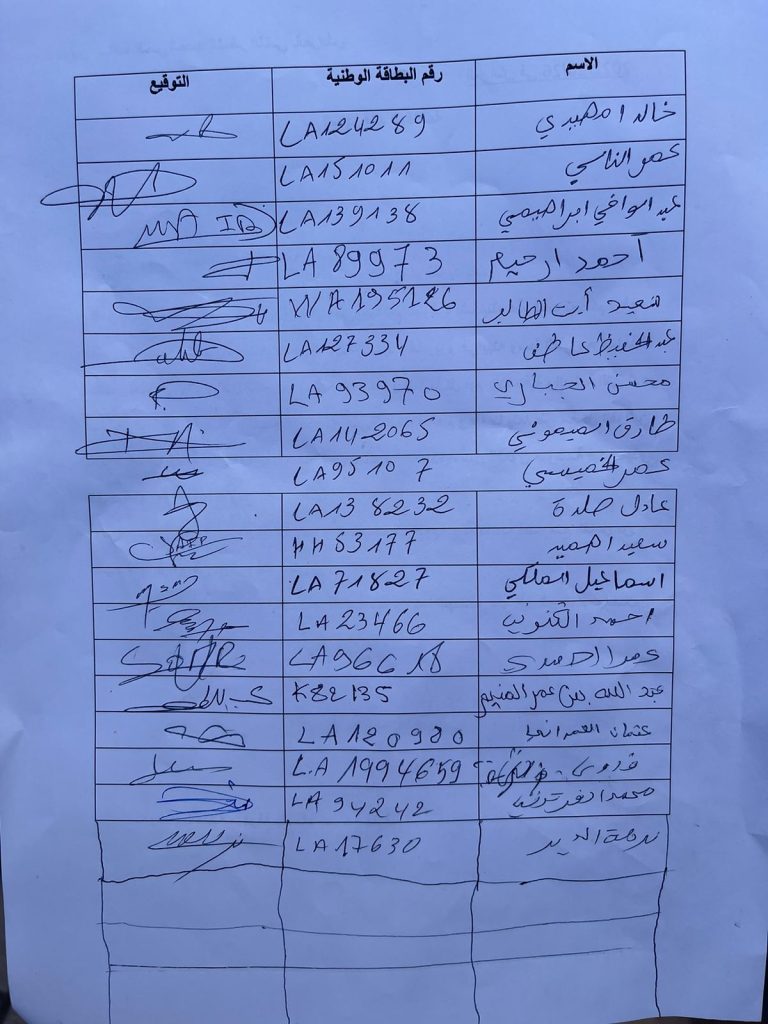 الاسم رقم البطاقة الوطنية التوقيع
خالد امهيدي LA124289
عمر الناسي LA151011
عبد الوافي ابراهيمي LA139138
أحمد ارحيم LA89973
سعيد أيت الطالب WA195126
عبد الحفيظ عاطف LA127334
محسن الجباري LA93970
طارق الميموني LA142065
عمر الخميسي LA95107
عادل صلدة LA138232
سعيد اهميد HH53177
اسماعيل الملكي LA71827
احمد الكنوني LA23466
عمر LA96618
عبد الله بن عمر المنيم K82135
عثمان العمراني LA120980
LA1994659
محمد LA94242
LA17630